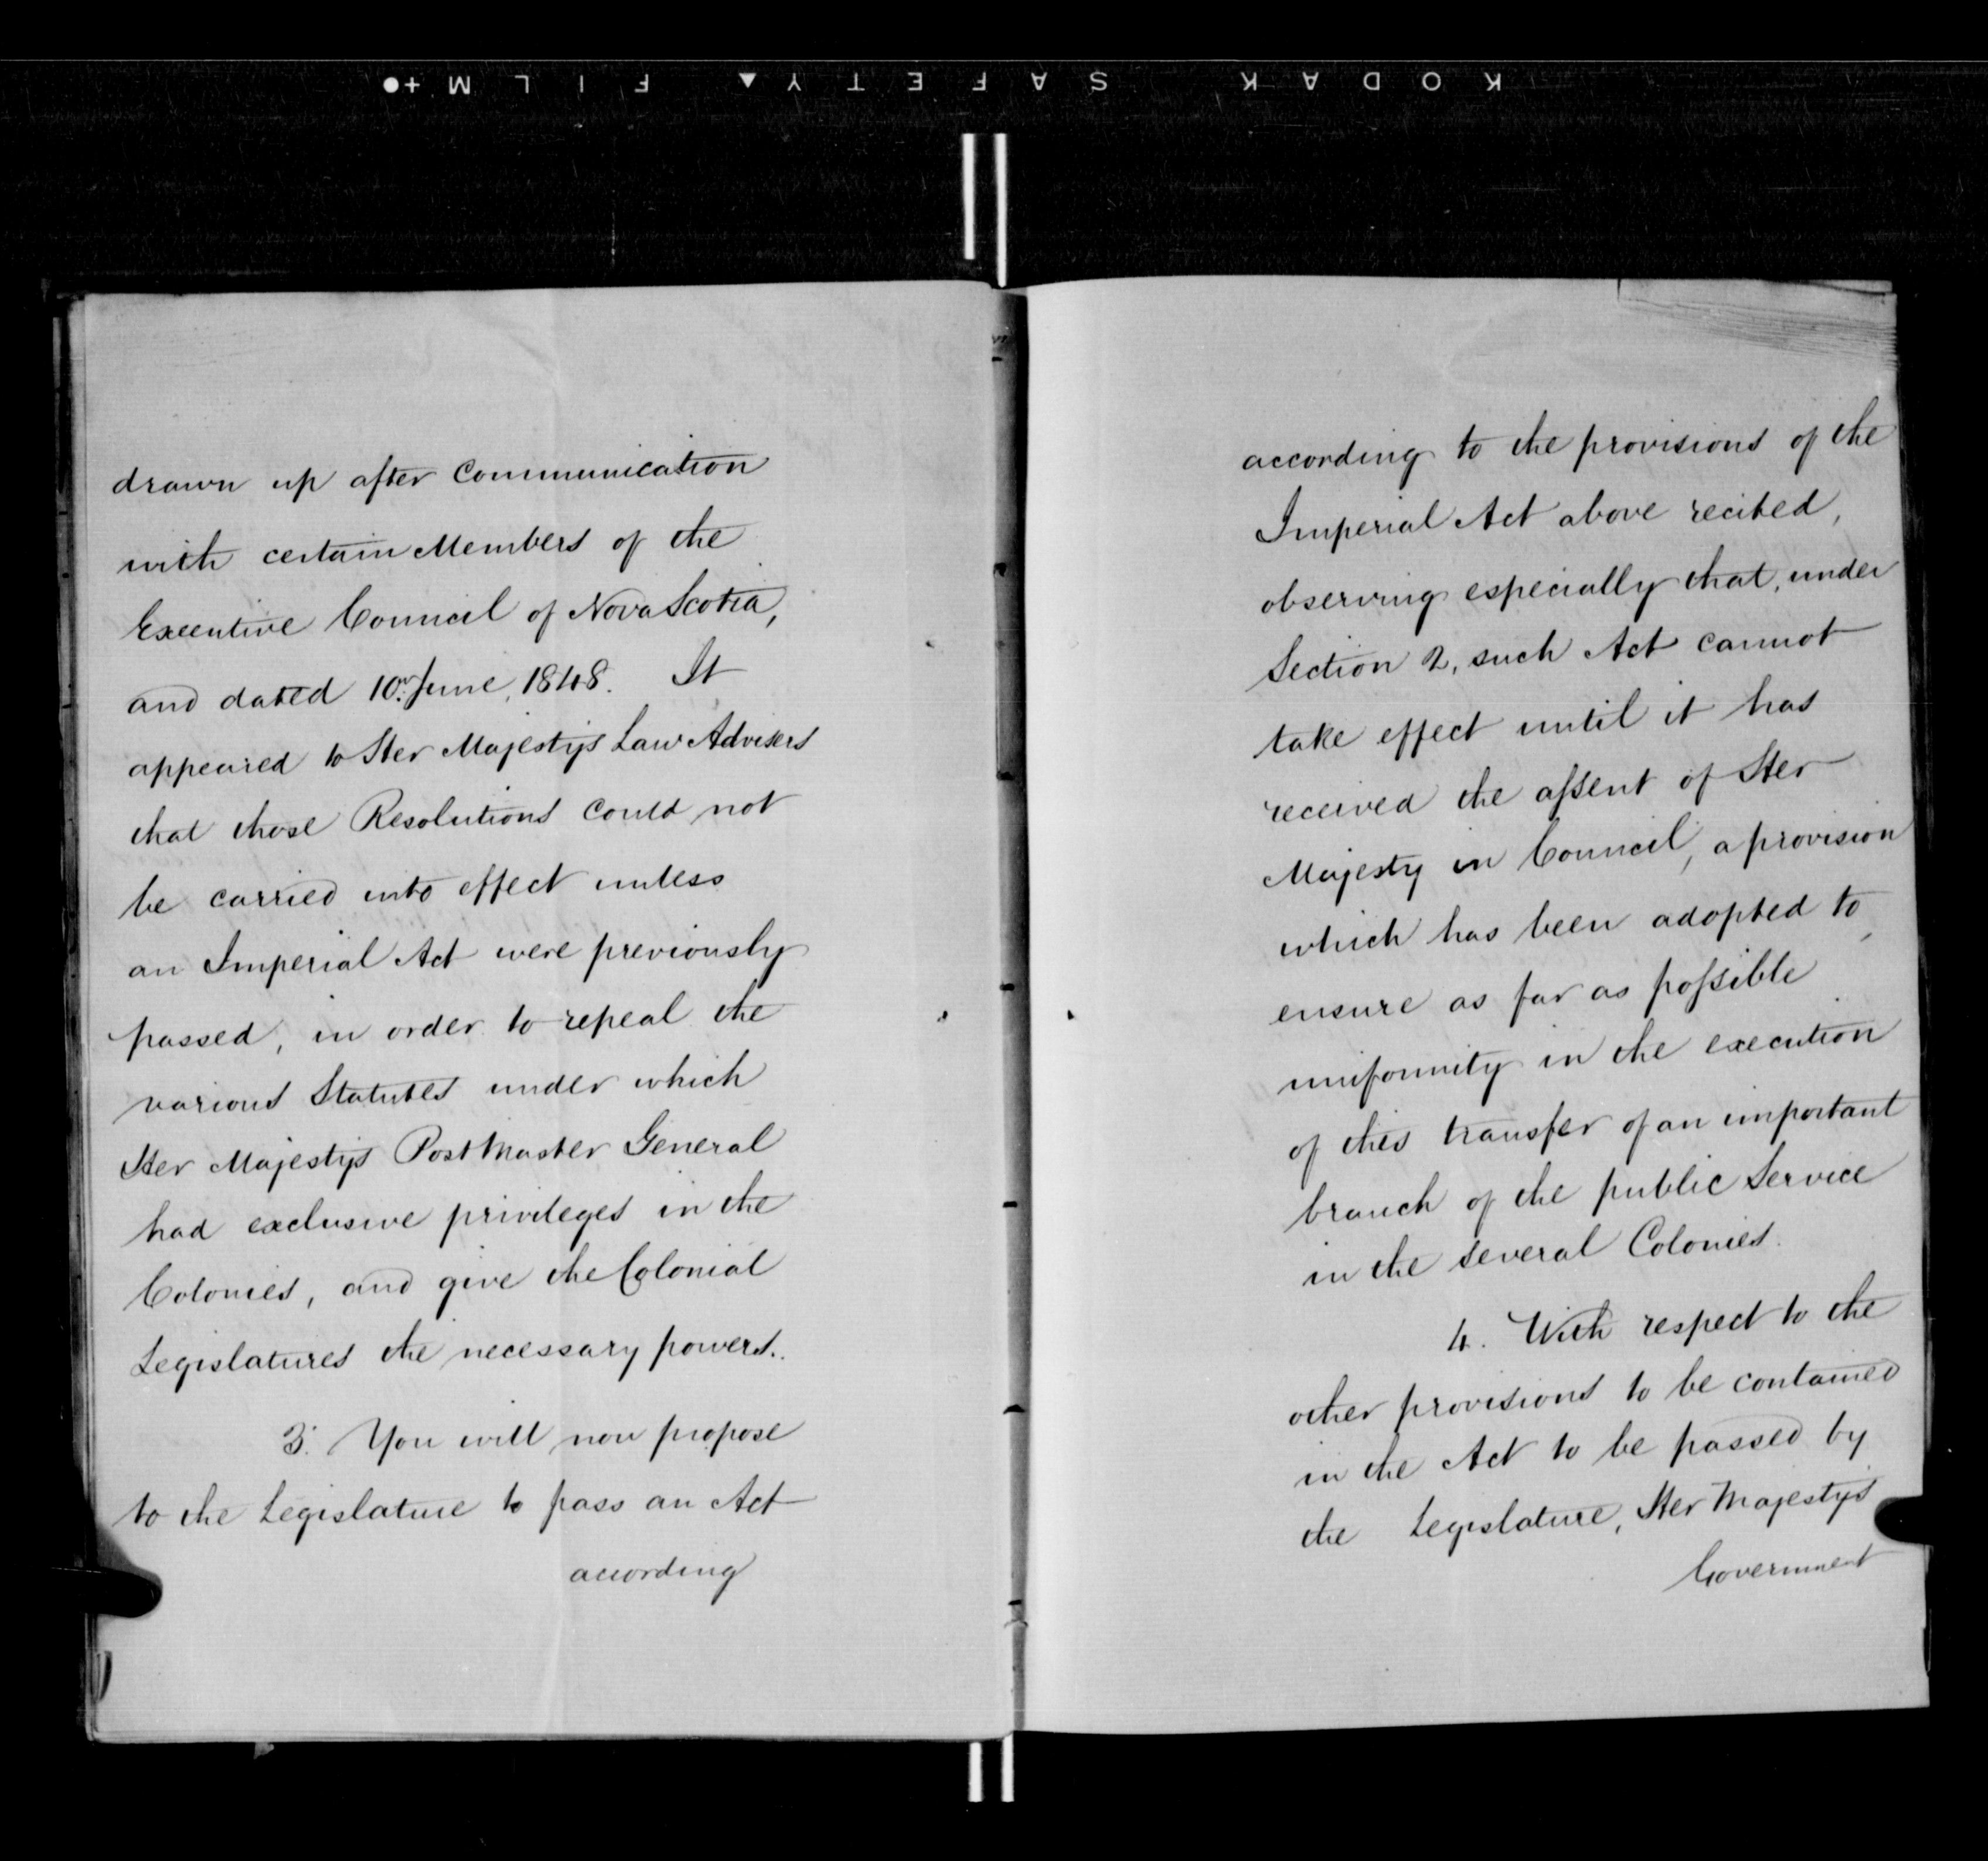 KODAK SAFETY FILM
drawn up after communication
with certain Members of the
Executive Council of Nova Scotia,
and dated 10th June, 1848. It
appeared to Her Majesty's Law Advisers
that those Resolutions could not
be carried into effect unless
an Imperial Act were previously
passed, in order to repeal the
various Statutes under which
Her Majesty's PostMaster General
had exclusive privileges in the
Colonies, and give the Colonial
Legislatures the necessary powers.
3. You will now propose
to the Legislature to pass an Act
according
according to the provisions of the
Imperial Act above recited,
observing especially that, under
Section 2, such Act cannot
take effect until it has
received the assent of Her
Majesty in Council, a provision
which has been adopted to
ensure as far as possible
uniformity in the execution
of this transfer of an important
branch of the public Service
in the several Colonies.
4. With respect to the
other provisions to be contained
in the Act to be passed by
the Legislature, Her Majesty's
Government